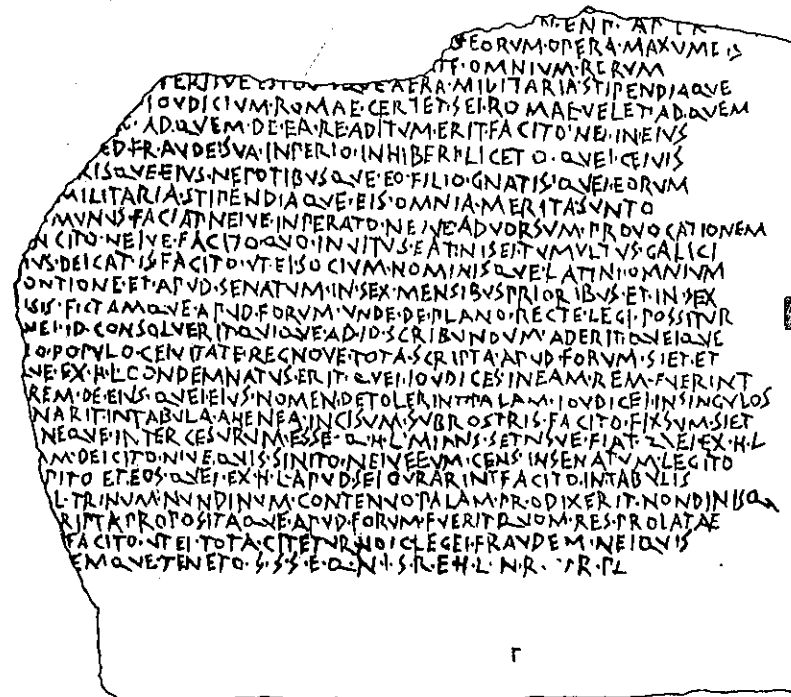 EORVM·OPERA·MAXVMEIS
OMNIVM·RERVM
AERA·MILITARIA·STIPENDIAQVE
IOVDICIVM·ROMAE·CERTET·SEI·ROMAE·VELET·AD·QVEM
AD·QVEM·DE·EA·RE·ADITVM·ERIT·FACITO·NEI·IN·EIVS
ED·FRAVDE·SVA·INPERIO·INHIBERE·LICETO·QVEI·CEIVIS
RISQVE·EIVS·NEPOTIBVSQVE·EO·FILIO·GNATIS·QVEI·EORVM
MILITARIA·STIPENDIAQVE·EIS·OMNIA·MERITA·SVNTO
MVNVS·FACIAT·NEIVE·INPERATO·NEIVE·ADVORSVM·PROVOCATIONEM
NCITO·NEIVE·FACITO·QVO·INVITVS·EAT·NISEI·TVMVLTVS·GALICI
IVS·DEICAT·IS·FACITO·VTEI·SOCIVM·NOMINISQVE·LATINI·OMNIVM
ONTIONE·ET·APVD·SENATVM·IN·SEX·MENSIBVS·PRIORIBVS·ET·IN·SEX
ISIS·FICTAM·QVE·APVD·FORVM·VNDE·DE·PLANO·RECTE·LEGI·POSSITVR
NEI·ID·CONSOLVERIT·QVIQVE·AD·ID·SCRIBVNDVM·ADERIT·QVEIQVE
IO·POPVLO·CEIVITATE·REGNOVE·TOTA·SCRIPTA·APVD·FORVM·SIET·ET
VE·EX·H·L·CONDEMNATVS·ERIT·QVEI·IOVDICES·IN·EAM·REM·FVERINT
REM·DE·EIVS·QVEI·EIVS·NOMEN·DETOLERINT·PALAM·IOVDICEI·IN·SINGVLOS
NARIT·IN·TABVLA·AHENEA·INCISVM·SVB·ROSTRIS·FACITO·FIXSVM·SIET
NEQVE·INTERCESVRVM·ESSE·Q·H·L·MIANS·SETNSVE·FIAT·QVEI·EX·H·L
AM·DEICITO·NIVE·QVIS·SINITO·NEIVE·EVM·CENS·IN·SENATVM·LEGITO
PITO·ET·EOS·QVEI·EX·H·L·APVD·SE·IOVRARINT·FACITO·IN·TABVLIS
L·TRINVM·NVNDINVM·CONTENVO·PALAM·PRODIXERIT·NONDINISQ
RIPTA·PROPOSITAQVE·APVD·FORVM·FVERIT·QVOM·RES·PROLATAE
FACITO·VTEI·TOTA·CITETVR·NOIC·LEGEI·FRAVDEM·NEIQVIS
EMQVE·TENETO·S·S·S·E·Q·N·I·S·R·E·H·L·N·R